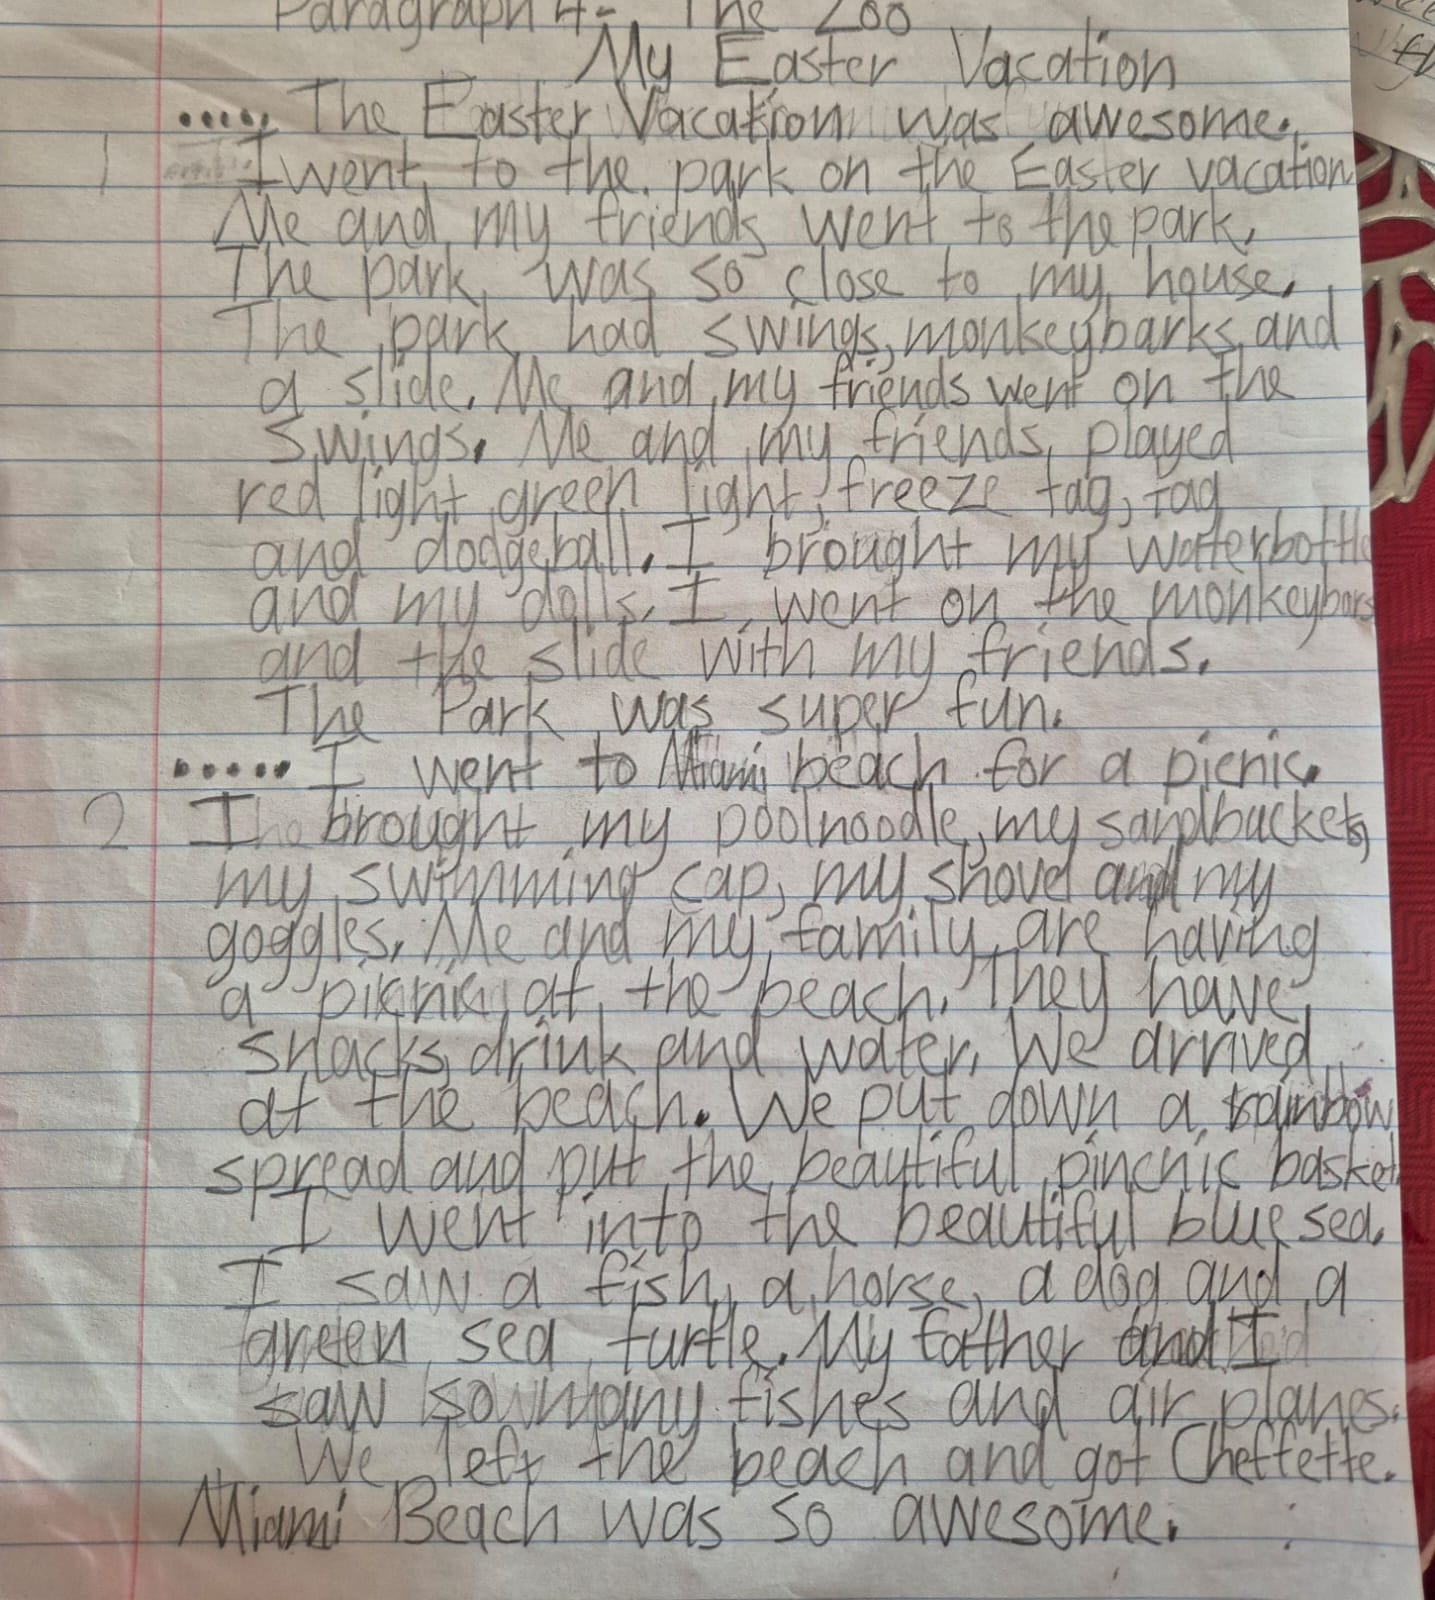 Paragraph 4- The Zoo
My Easter Vacation
..... The Easter Vacation was awesome.
1 I went to the park on the Easter vacation
Me and my friends went to the park.
The park was so close to my house.
The park had swings, monkeybarks and
a slide. Me and my friends went on the
swings. Me and my friends played
red light green light, freeze tag, tag
and dodgeball. I brought my waterbottle
and my dolls. I went on the monkeybars
and the slide with my friends.
The Park was super fun.
..... I went to Miami beach for a picnic.
2 I brought my poolnoodle, my sandbuckets,
my swimming cap, my shovel and my
goggles. Me and my family are having
a piknic at the beach. They have
snacks, drink and water. We arrived
at the beach. We put down a rainbow
spread and put the beautiful pincnic basket
I went into the beautiful blue sea.
I saw a fish, a horse, a dog and a
green sea turtle. My father and I
saw so many fishes and air planes.
We left the beach and got Cheffette.
Miami Beach was so awesome.